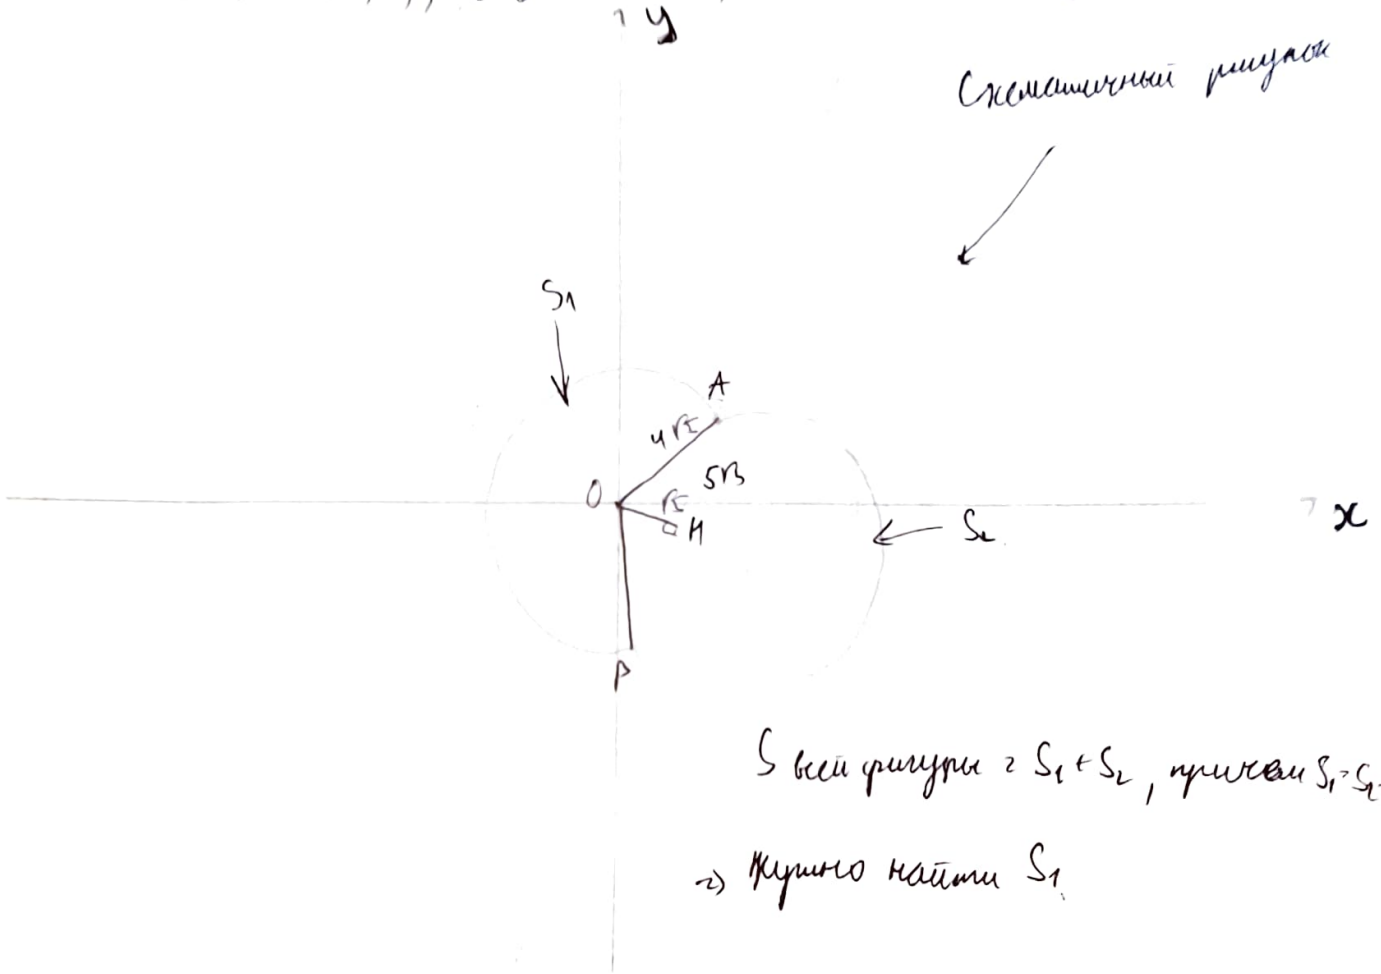 y
Схематичный рисунок
S1
A
4√2
5√3
O
√2
H
S2
x
P
S всей фигуры = S1 + S2, причем S1 = S2
=> Нужно найти S1